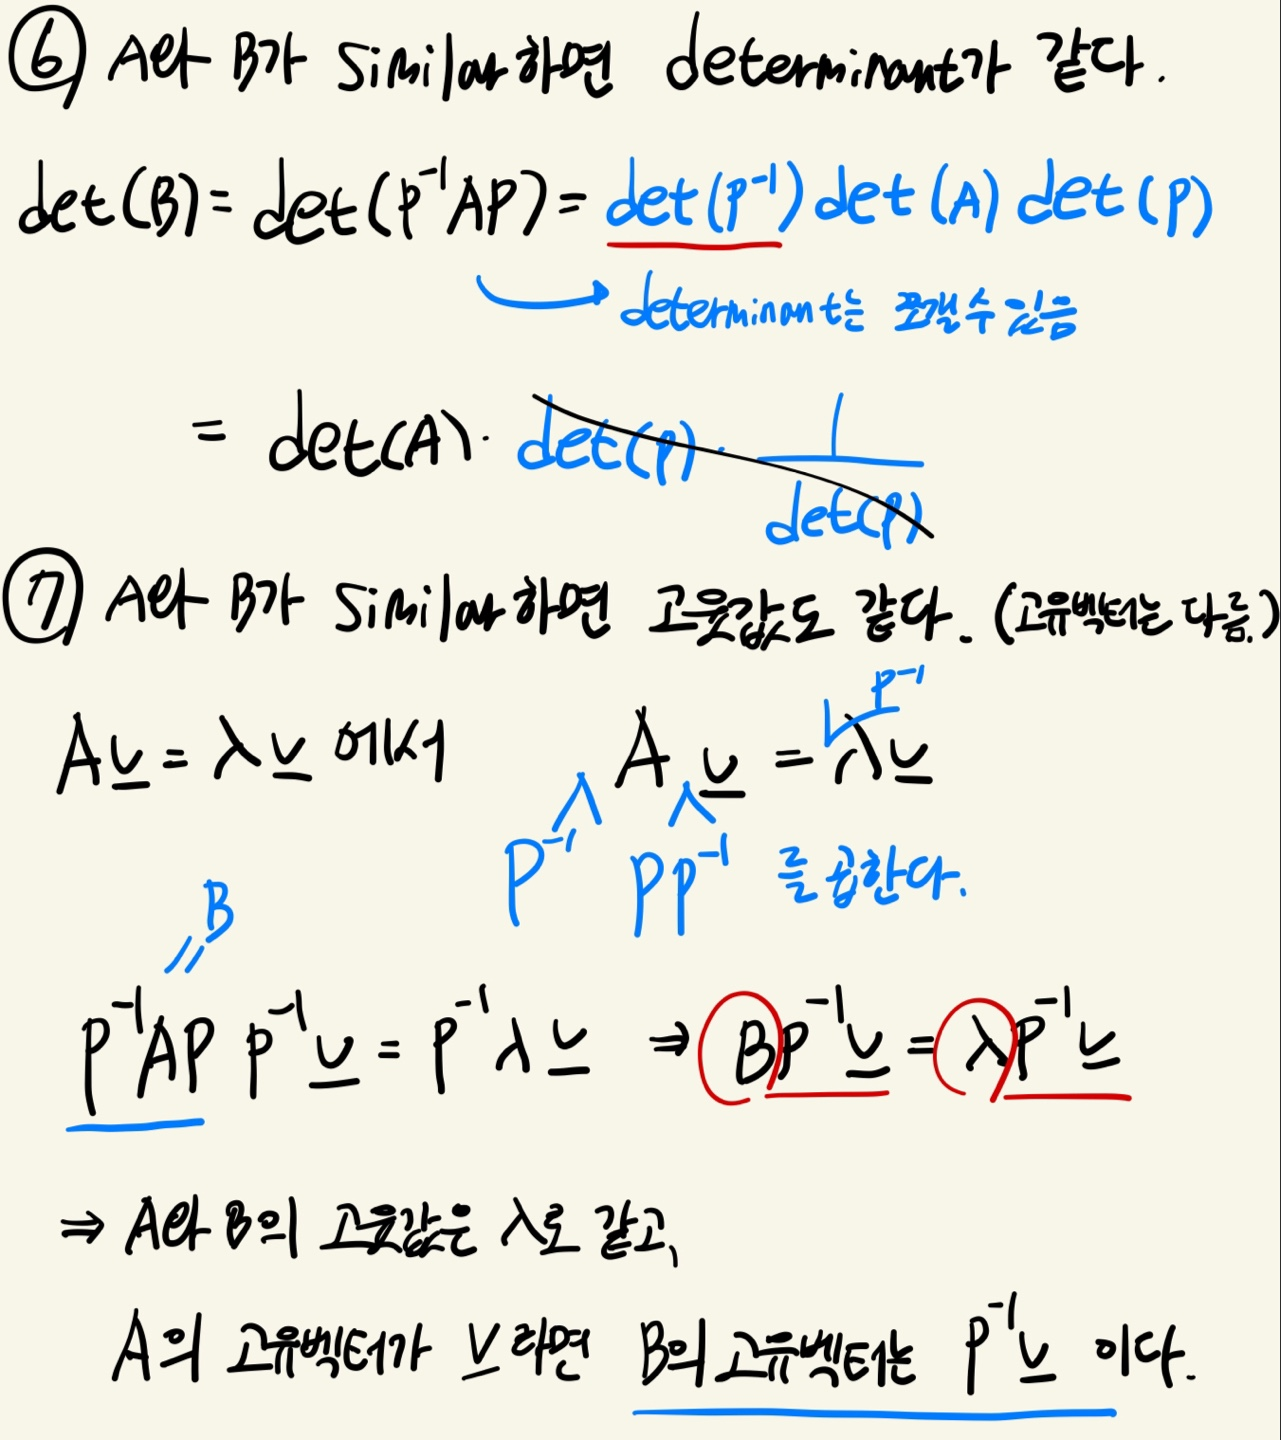 ⑥ A와 B가 Similar하면 determinant가 같다.
det(B) = det(P⁻¹AP) = det(P⁻¹) det(A) det(P)
determinant는 쪼갤수 있음
= det(A) · det(P) · 1/det(P)
⑦ A와 B가 Similar하면 고윳값도 같다. (고유벡터는 다름.)
P⁻¹
Av = λv 에서 A v = λv
P⁻¹ PP⁻¹ 를 곱한다.
B
P⁻¹AP P⁻¹v = P⁻¹λv ⇒ BP⁻¹v = λP⁻¹v
⇒ A와 B의 고윳값은 λ로 같고,
A의 고유벡터가 v라면 B의 고유벡터는 P⁻¹v 이다.